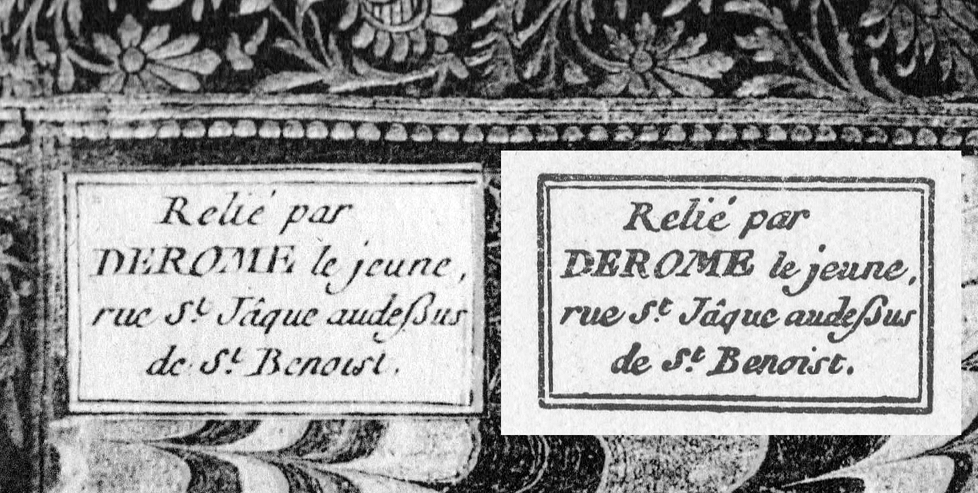 Relié par
DEROME le jeune,
rue S.t Jâque audeſsus
de S.t Benoist.
Relié par
DEROME le jeune,
rue S.t Jâque audeſsus
de S.t Benoist.